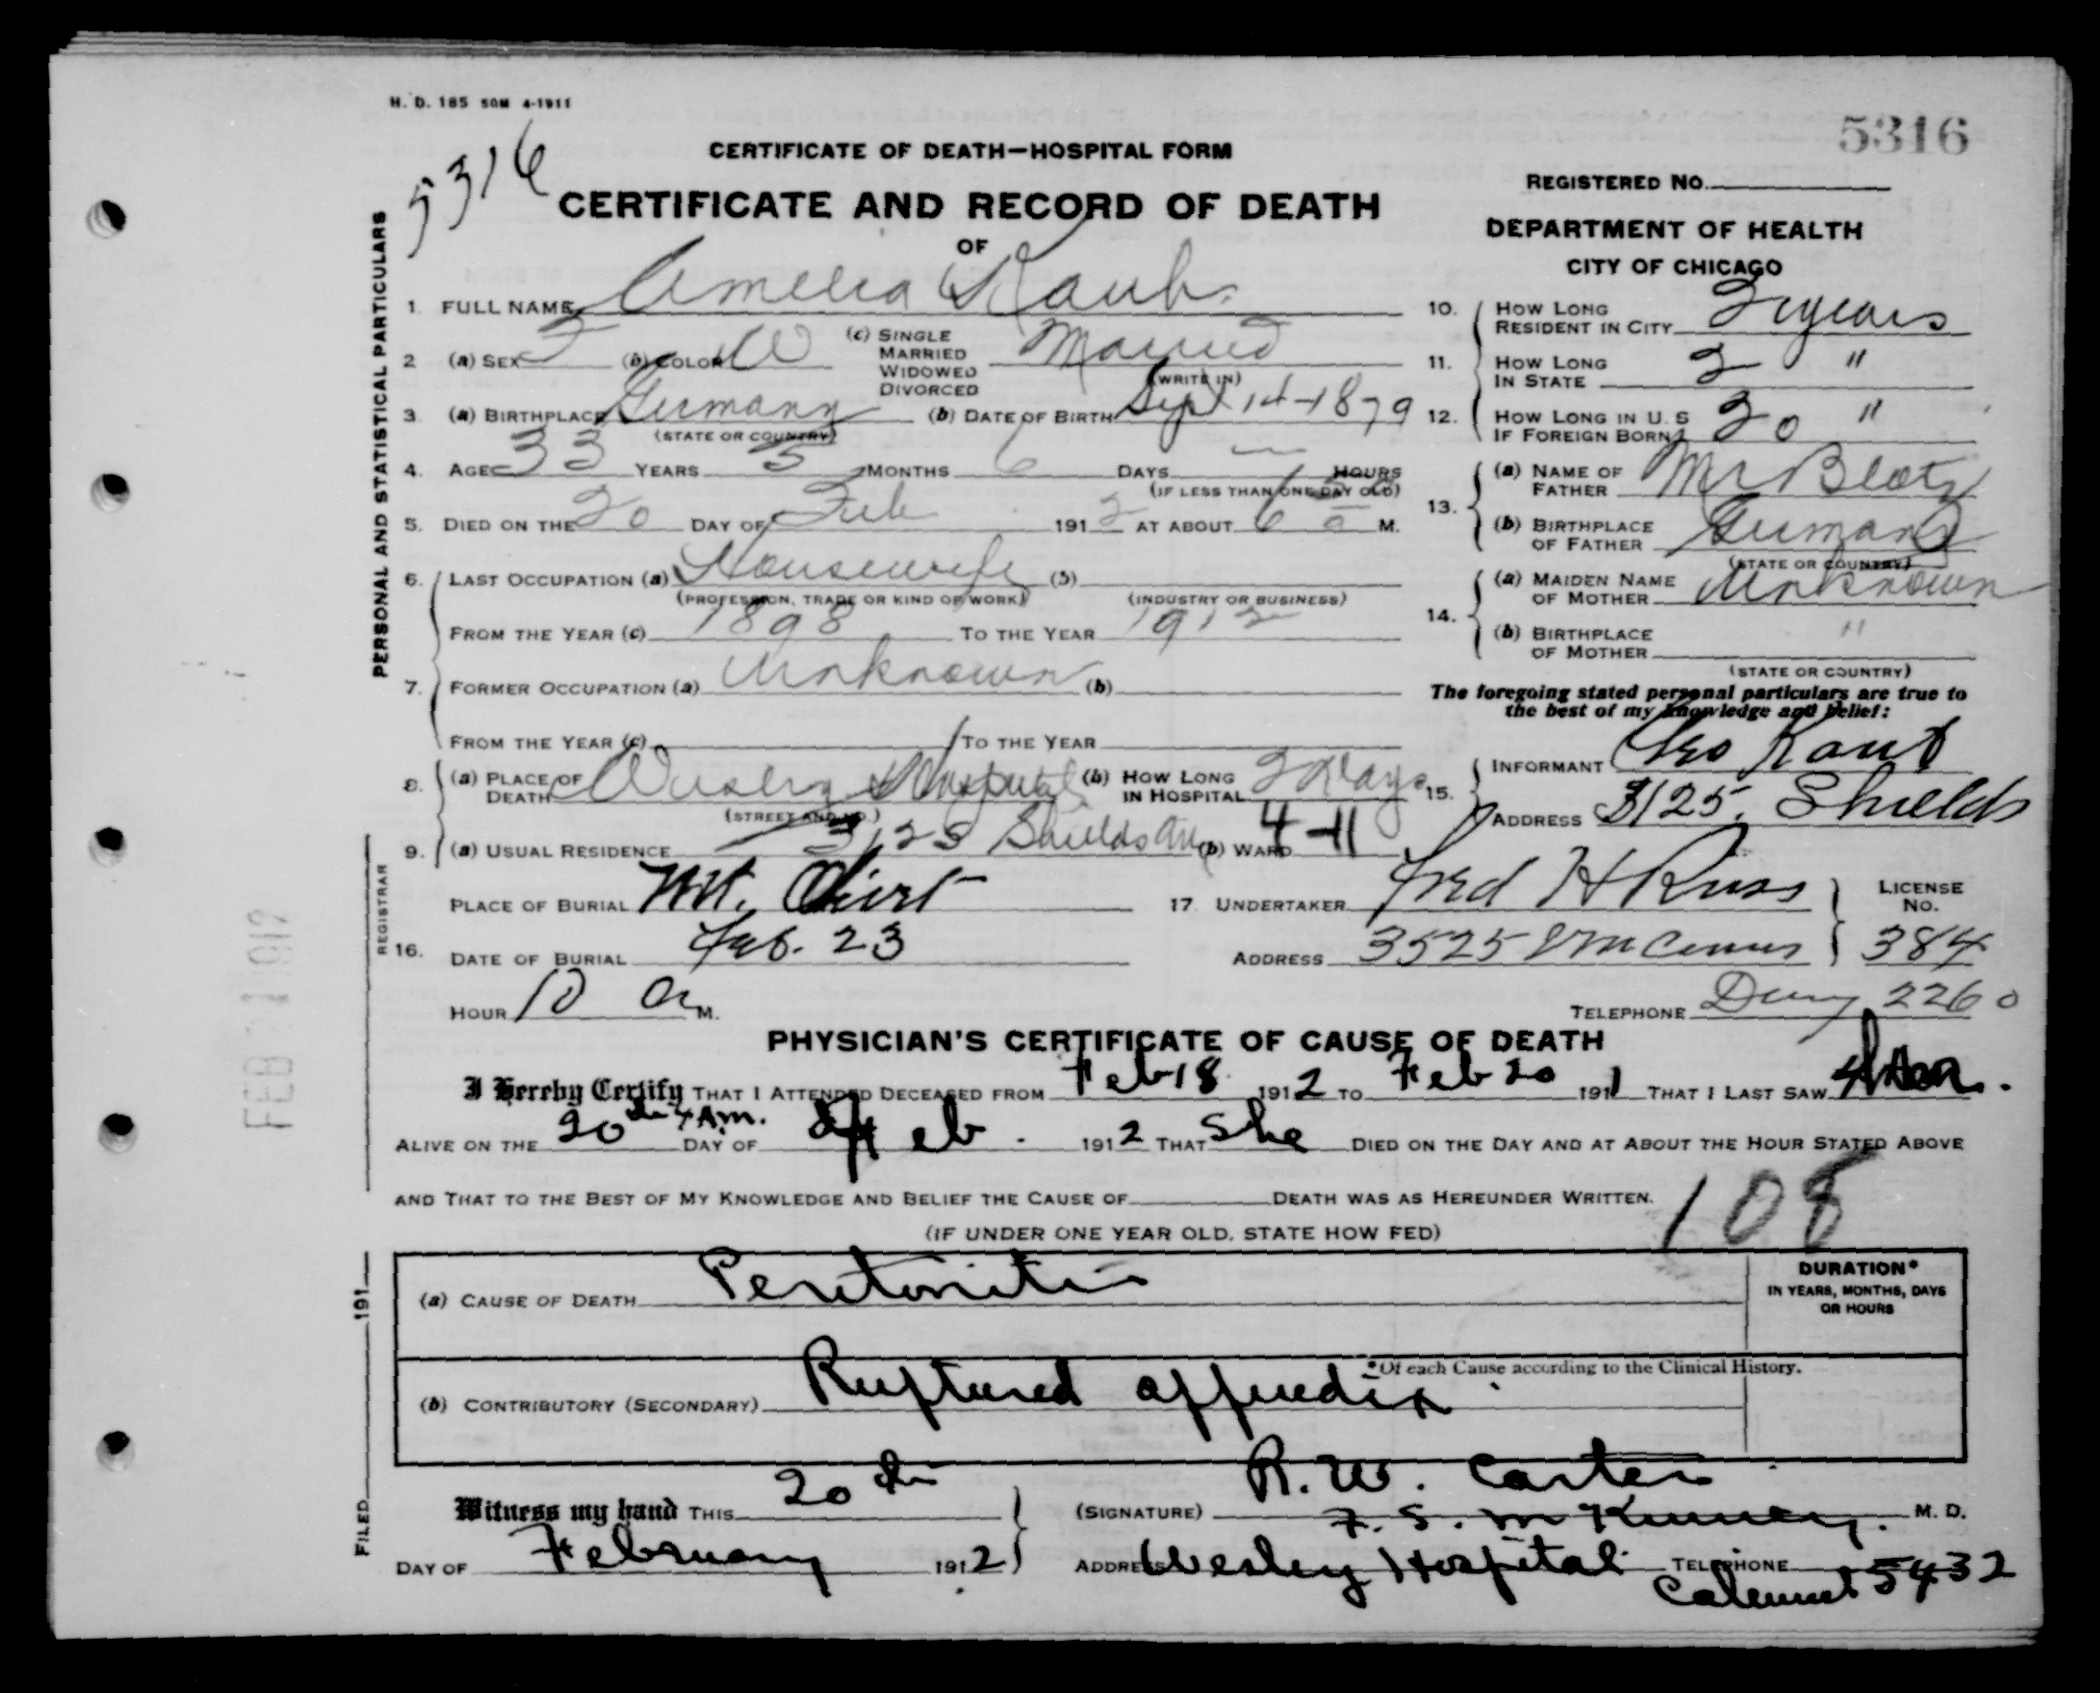 H. D. 185 50M 4-1911
5316
5316
CERTIFICATE OF DEATH—HOSPITAL FORM
REGISTERED NO.
CERTIFICATE AND RECORD OF DEATH
OF
DEPARTMENT OF HEALTH
CITY OF CHICAGO
PERSONAL AND STATISTICAL PARTICULARS
1. FULL NAME Amelia Kaub
2 (a) SEX F (b) COLOR W (c) SINGLE MARRIED WIDOWED DIVORCED Married
(WRITE IN)
3. (a) BIRTHPLACE Germany (b) DATE OF BIRTH Sept 14-1879
(STATE OR COUNTRY)
4. AGE 33 YEARS 5 MONTHS 6 DAYS — HOURS
(IF LESS THAN ONE DAY OLD)
5. DIED ON THE 20 DAY OF Feb 1912 AT ABOUT 6 M.
6. LAST OCCUPATION (a) Housewife (b)
(PROFESSION, TRADE OR KIND OF WORK) (INDUSTRY OR BUSINESS)
FROM THE YEAR (c) 1898 TO THE YEAR 1912
7. FORMER OCCUPATION (a) Unknown (b)
FROM THE YEAR (c) TO THE YEAR
8. (a) PLACE OF DEATH Wesley Hospital (b) HOW LONG IN HOSPITAL 2 Days
(STREET AND NO.)
9. (a) USUAL RESIDENCE 3125 Shields Av (b) WARD 4-11
10. HOW LONG RESIDENT IN CITY 2 years
11. HOW LONG IN STATE 2 "
12. HOW LONG IN U. S IF FOREIGN BORN 20 "
13. (a) NAME OF FATHER Mr Blatz
(b) BIRTHPLACE OF FATHER Germany
(STATE OR COUNTRY)
14. (a) MAIDEN NAME OF MOTHER Unknown
(b) BIRTHPLACE OF MOTHER "
(STATE OR COUNTRY)
The foregoing stated personal particulars are true to
the best of my knowledge and belief:
15. INFORMANT Geo Kaub
ADDRESS 3125. Shields
REGISTRAR
16. PLACE OF BURIAL Mt. Olivet
DATE OF BURIAL Feb. 23
HOUR 10 A M.
17. UNDERTAKER Fred H Russ LICENSE NO.
ADDRESS 3525 384
TELEPHONE 2260
FEB 1912
PHYSICIAN'S CERTIFICATE OF CAUSE OF DEATH
I Hereby Certify THAT I ATTENDED DECEASED FROM Feb 18 1912 TO Feb 20 1911 THAT I LAST SAW her.
ALIVE ON THE 20th 4 A.M. DAY OF Feb. 1912 THAT She DIED ON THE DAY AND AT ABOUT THE HOUR STATED ABOVE
AND THAT TO THE BEST OF MY KNOWLEDGE AND BELIEF THE CAUSE OF DEATH WAS AS HEREUNDER WRITTEN.
108
(IF UNDER ONE YEAR OLD, STATE HOW FED)
(a) CAUSE OF DEATH Peritonitis
DURATION*
IN YEARS, MONTHS, DAYS
OR HOURS
*Of each Cause according to the Clinical History.
(b) CONTRIBUTORY (SECONDARY) Ruptured appendix.
FILED 191
Witness my hand THIS 20th
DAY OF February 1912
R. W. Carter
(SIGNATURE) F. S. McKinney. M. D.
ADDRESS Wesley Hospital TELEPHONE
Calumet 5432